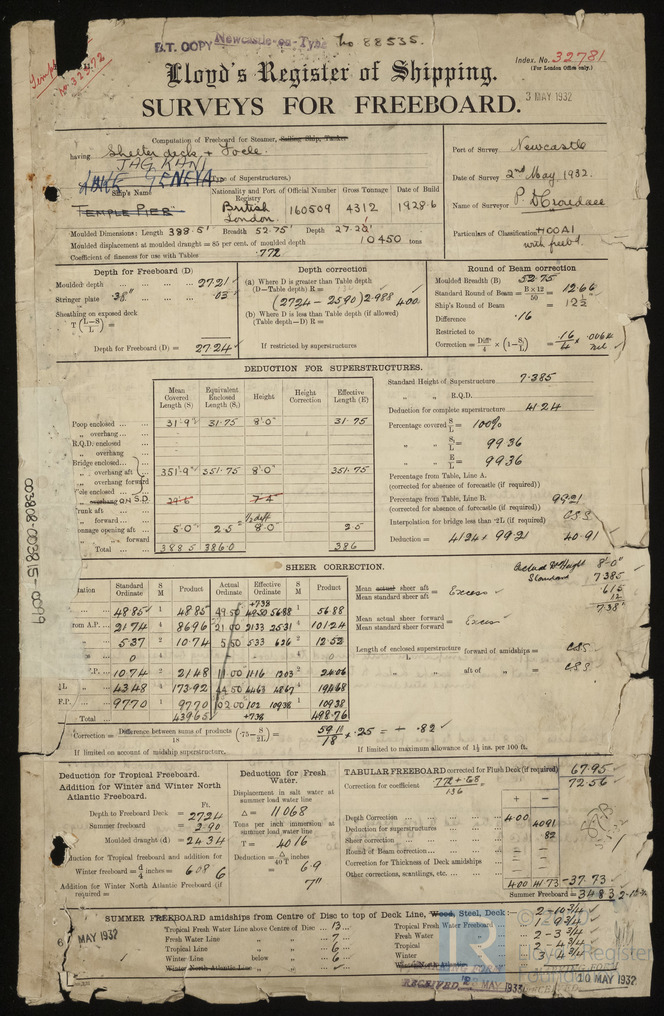 B.T. COPY Newcastle-on-Tyne No 88535.
Index. No. 32781
(For London Office only.)
Lloyd's Register of Shipping.
3 MAY 1932
SURVEYS FOR FREEBOARD.
Computation of Freeboard for Steamer, Sailing Ship, Tanker
having Shelter deck + Focle.
JAG RANI
GENEVA
(Type of Superstructures.)
Ship's Name
Nationality and Port of Registry
Official Number
Gross Tonnage
Date of Build
TEMPLE PIER
British London.
160509
4312
1928.6
Port of Survey Newcastle
Date of Survey 2nd May 1932.
Name of Surveyor
Particulars of Classification +100A1
with freeb'd.
Moulded Dimensions: Length 388.5' Breadth 52.75' Depth
Moulded displacement at moulded draught = 85 per cent. of moulded depth 10450 tons
Coefficient of fineness for use with Tables .772
Depth for Freeboard (D)
Moulded depth ... 27.21
Stringer plate .38" ... .03
Sheathing on exposed deck
T (L-S/L) =
Depth for Freeboard (D) = 27.24
Depth correction
(a) Where D is greater than Table depth
(D-Table depth) R =
(27.24 - 25.90) 2.988 4.00
(b) Where D is less than Table depth (if allowed)
(Table depth-D) R =
If restricted by superstructures
Round of Beam correction
Moulded Breadth (B) 52.75
Standard Round of Beam = B x 12/50 = 12.66
Ship's Round of Beam = 12 1/2
Difference .16
Restricted to
Correction = Diff/4 x (1-S1/L) = .16/4 x .0064 nil
DEDUCTION FOR SUPERSTRUCTURES.
Mean Covered Length (S)
Equivalent Enclosed Length (S1)
Height
Height Correction
Effective Length (E)
Poop enclosed ... 31.9" 31.75 8'.0" 31.75
" overhang ...
R.Q.D. enclosed
" overhang
Bridge enclosed...
" overhang aft 351'.9" 351.75 8'.0" 351.75
" overhang forward
F'cle enclosed ...
" overhang ON S.D.
Trunk aft
" forward ...
Tonnage opening aft 5.0" 2.5 8'.0" 2.5
" forward
Total ... 388.5 386.0 386
Standard Height of Superstructure 7.385
" " R.Q.D.
Deduction for complete superstructure 41.24
Percentage covered S/L = 100%
" " S1/L = 99.36
" " E/L = 99.36
Percentage from Table, Line A.
(corrected for absence of forecastle (if required))
Percentage from Table, Line B. 99.21
(corrected for absence of forecastle (if required))
Interpolation for bridge less than .2L (if required) CSS.
Deduction = 41.24 x 99.21 40.91
SHEER CORRECTION.
Station Standard Ordinate S M Product Actual Ordinate Effective Ordinate S M Product
48.85 1 48.85 49.50 +7.38 49.50 56.88 1 56.88
from A.P. ... 21.74 4 86.96 21.00 21.33 25.31 4 101.24
5.37 2 10.74 5.50 5.33 6.26 2 12.52
0 4 0 4
F.P. ... 10.74 2 21.48 11.00 11.16 12.03 2 24.06
43.48 4 173.92 44.50 44.63 48.67 4 194.68
F.P. ... 97.70 1 97.70 102.00 102 109.38 1 109.38
Total ... 439.65 +7.38 498.76
Actual S Height 8'.0"
Standard 7.385
.615
12
7.38"
Mean actual sheer aft / Mean standard sheer aft = Excess
Mean actual sheer forward / Mean standard sheer forward = Excess
Length of enclosed superstructure / L forward of amidships = CSS
" " aft of " = CSS
Correction = Difference between sums of products / 18 (.75-S/2L) = 59.11/18 x .25 = + .82
If limited on account of midship superstructure.
If limited to maximum allowance of 1½ ins. per 100 ft.
Deduction for Tropical Freeboard.
Addition for Winter and Winter North Atlantic Freeboard.
Ft.
Depth to Freeboard Deck = 27.24
Summer freeboard = 2.90
Moulded draught (d) = 24.34
Deduction for Tropical freeboard and addition for
Winter freeboard = d/4 inches = 6.08 6
Addition for Winter North Atlantic Freeboard (if required) =
Deduction for Fresh Water.
Displacement in salt water at summer load water line
Δ = 11068
Tons per inch immersion at summer load water line
T = 40.16
Deduction = Δ/40T inches = 6.9
7"
TABULAR FREEBOARD corrected for Flush Deck (if required) 67.95
Correction for coefficient .772 + .68 / 1.36 72.56
+ -
Depth Correction 4.00
Deduction for superstructures 40.91
Sheer correction .82
Round of Beam correction
Correction for Thickness of Deck amidships
Other corrections, scantlings, etc.
4.00 41.73 -37.73
Summer Freeboard = 34.83
SUMMER FREEBOARD amidships from Centre of Disc to top of Deck Line, Wood, Steel, Deck:— 2-10 3/4
Tropical Fresh Water Line above Centre of Disc ... 13
Fresh Water Line " " ... 7
Tropical Line " " ... 6
Winter Line below " ... 6
Winter North Atlantic Line " "
Tropical Fresh Water Freeboard 1-9 3/4
Fresh Water " 2-3 3/4
Tropical " 2-4 3/4
Winter " 3-4 3/4
Winter North Atlantic "
MAY 1932
RECEIVED
10 MAY 1932
003808-003815-0099
LR
© Lloyd's Register